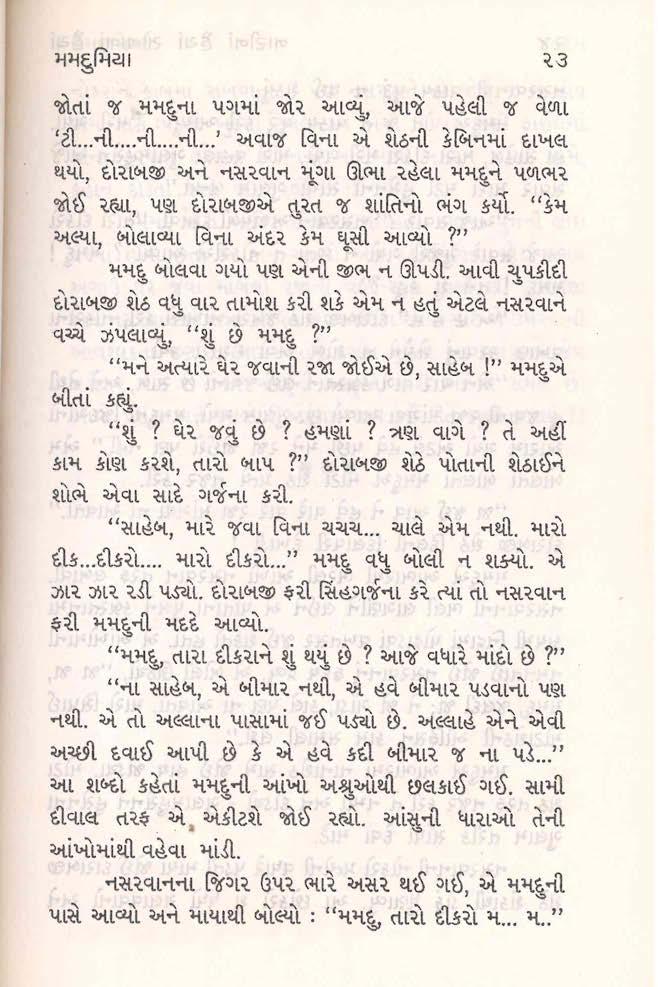 મમદુમિયા ૨૩
જોતાં જ મમદુના પગમાં જોર આવ્યું, આજે પહેલી જ વેળા
‘ટી...ની....ની...ની...’ અવાજ વિના એ શેઠની કેબિનમાં દાખલ
થયો, દોરાબજી અને નસરવાન મૂગા ઊભા રહેલા મમદુને પળભર
જોઈ રહ્યા, પણ દોરાબજીએ તુરત જ શાંતિનો ભંગ કર્યો. “કેમ
અલ્યા, બોલાવ્યા વિના અંદર કેમ ઘૂસી આવ્યો ?”
મમદુ બોલવા ગયો પણ એની જીભ ન ઊપડી. આવી ચુપકીદી
દોરાબજી શેઠ વધુ વાર તામોશ કરી શકે એમ ન હતું એટલે નસરવાને
વચ્ચે ઝંપલાવ્યું, “શું છે મમદુ ?”
“મને અત્યારે ઘેર જવાની રજા જોઈએ છે, સાહેબ !” મમદુએ
બીતાં કહ્યું.
“શું ? ઘેર જવું છે ? હમણાં ? ત્રણ વાગે ? તે અહીં
કામ કોણ કરશે, તારો બાપ ?” દોરાબજી શેઠે પોતાની શેઠાઈને
શોભે એવા સાદે ગર્જના કરી.
“સાહેબ, મારે જવા વિના ચચચ... ચાલે એમ નથી. મારો
દીક...દીકરો.... મારો દીકરો...” મમદુ વધુ બોલી ન શક્યો. એ
ઝાર ઝાર રડી પડ્યો. દોરાબજી ફરી સિંહગર્જના કરે ત્યાં તો નસરવાન
ફરી મમદુની મદદે આવ્યો.
“મમદુ, તારા દીકરાને શું થયું છે ? આજે વધારે માંદો છે ?”
“ના સાહેબ, એ બીમાર નથી, એ હવે બીમાર પડવાનો પણ
નથી. એ તો અલ્લાના પાસામાં જઈ પડ્યો છે. અલ્લાહે એને એવી
અચ્છી દવાઈ આપી છે કે એ હવે કદી બીમાર જ ના પડે...”
આ શબ્દો કહેતાં મમદુની આંખો અશ્રુઓથી છલકાઈ ગઈ. સામી
દીવાલ તરફ એ એકીટશે જોઈ રહ્યો. આંસુની ધારાઓ તેની
આંખોમાંથી વહેવા માંડી.
નસરવાનના જિગર ઉપર ભારે અસર થઈ ગઈ, એ મમદુની
પાસે આવ્યો અને માયાથી બોલ્યો : “મમદુ, તારો દીકરો મ... મ..”